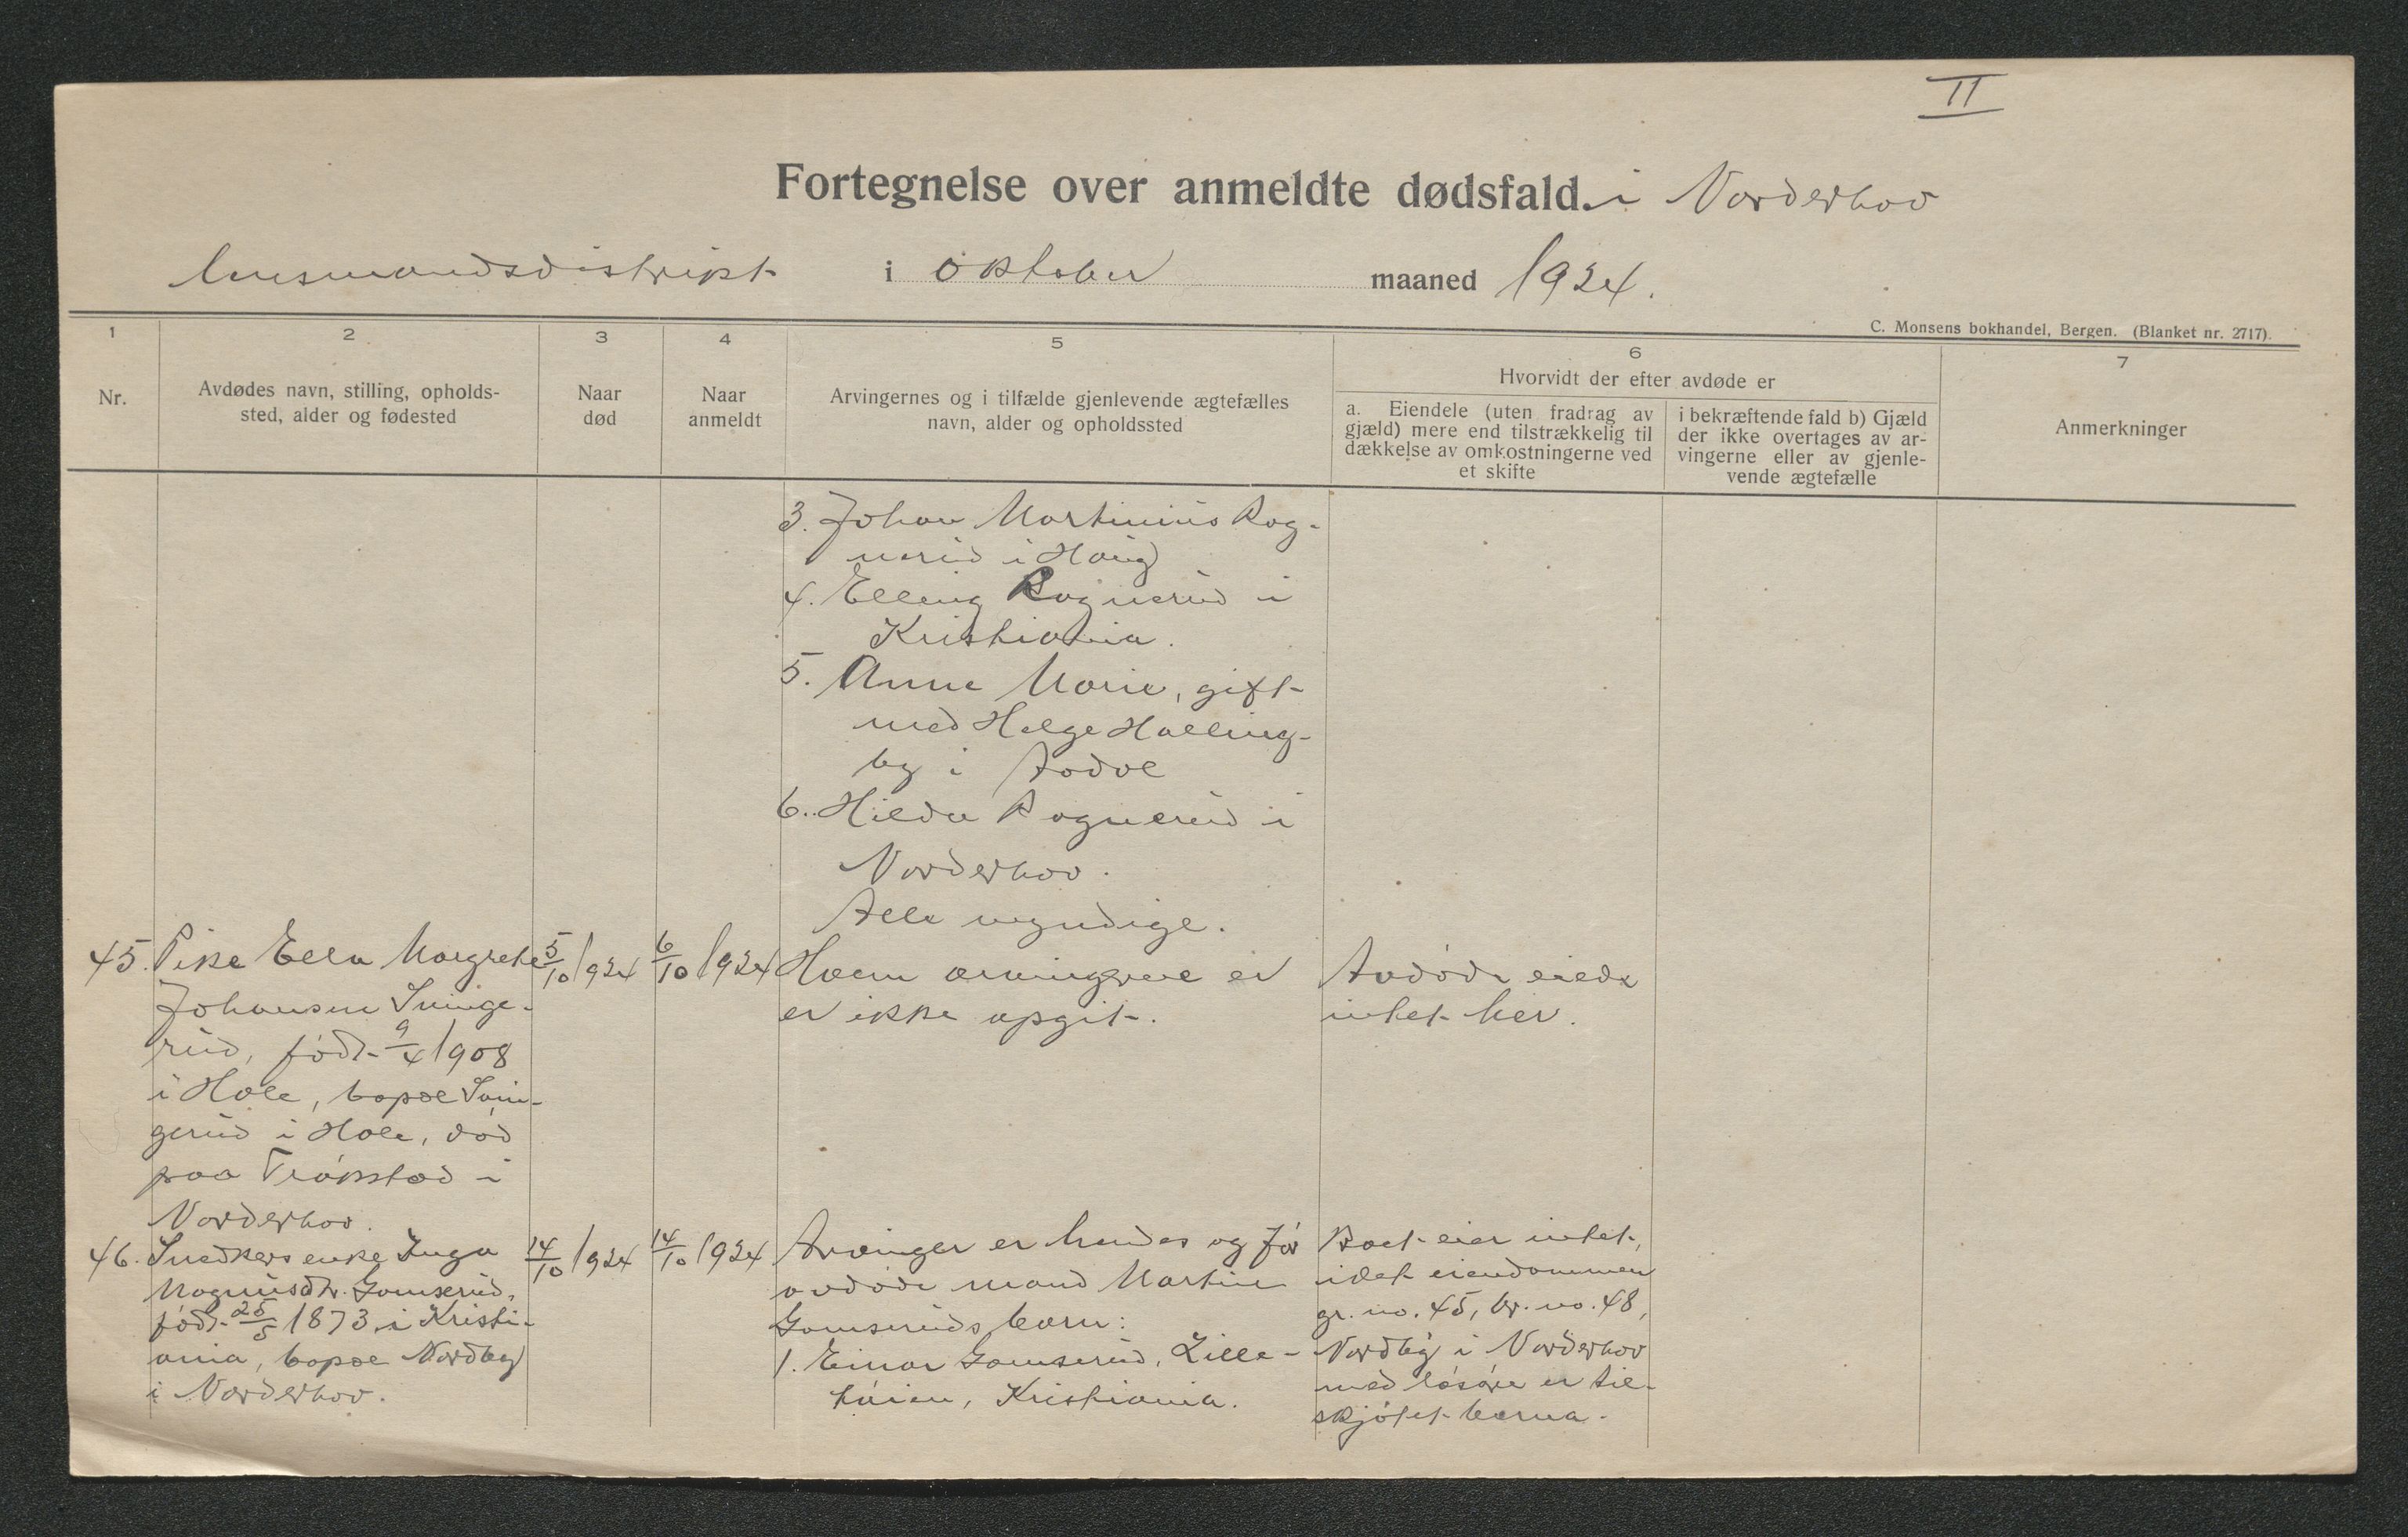 II
Fortegnelse over anmeldte dødsfald. i Norderhov
lensmandsdistrikt i oktober maaned 1924.
C. Monsens bokhandel, Bergen. (Blanket nr. 2717).
1
Nr.
2
Avdødes navn, stilling, opholds-
sted, alder og fødested
3
Naar
død
4
Naar
anmeldt
5
Arvingernes og i tilfælde gjenlevende ægtefælles
navn, alder og opholdssted
6
Hvorvidt der efter avdøde er
a. Eiendele (uten fradrag av
gjæld) mere end tilstrækkelig til
dækkelse av omkostningerne ved
et skifte
i bekræftende fald b) Gjæld
der ikke overtages av ar-
vingerne eller av gjenle-
vende ægtefælle
7
Anmerkninger
3. Johan Martinius Rog-
nerud i Haug
4. Elling Rognerud i
Kristiania.
5. Anne Marie, gift
med Helge Halling-
by i Aadal
6. Hilda Rognerud i
Norderhov.
Alle myndige.
45. Pike Ella Margrethe
Johansen Svinge-
rud, født 9/4 1908
i Hole, bopæl Svin-
gerud i Hole, død
paa Trøkstad i
Norderhov.
5/10 1924
6/10 1924
Hvem arvingerne er
er ikke opgit.
Avdøde eiede
intet her.
46. Snedkers enke Inga
Magnusdtr. Gomserud,
født 25/5 1873 i Kristi-
ania, bopæl Nordby
i Norderhov.
14/10 1924
14/10 1924
Arvinger er hendes og før
avdøde mand Martin
Gomseruds barn:
1. Einar Gomserud, Lille-
høien, Kristiania.
Boet eier intet,
idet eiendommen
gr. no. 45, br. no. 48,
Nordby i Norderhov
med løsøre er til-
skjøtet barna.